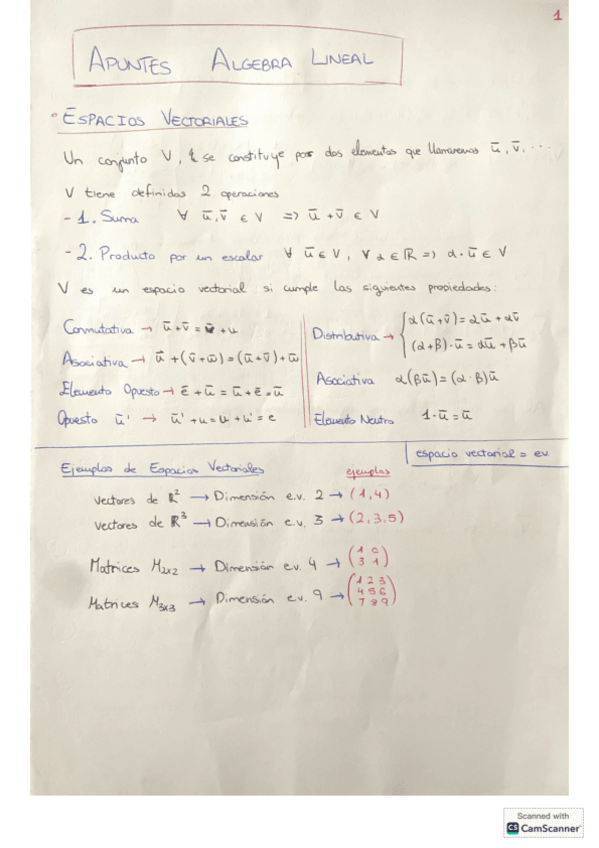 1
APUNTES ALGEBRA LINEAL
ESPACIOS VECTORIALES
Un conjunto V, se constituye por dos elementos que llamaremos ū, v̄, ...
V tiene definidas 2 operaciones
- 1. Suma ∀ ū, v̄ ∈ V => ū + v̄ ∈ V
- 2. Producto por un escalar ∀ ū ∈ V, ∀ α ∈ ℝ => α · ū ∈ V
V es un espacio vectorial si cumple las siguientes propiedades:
Conmutativa → ū + v̄ = v̄ + u
Asociativa → ū + (v̄ + w̄) = (ū + v̄) + w̄
Elemento Opuesto → ē + ū = ū + ē = ū
Opuesto ū' → ū' + u = u + u' = e
Distributiva → { α(ū + v̄) = αū + αv̄
(α + β) · ū = αū + βū
Asociativa α(βū) = (α · β)ū
Elemento Neutro 1 · ū = ū
espacio vectorial = ev
Ejemplos de Espacios Vectoriales
ejemplos
Vectores de ℝ² → Dimensión e.v. 2 → (1,4)
Vectores de ℝ³ → Dimensión e.v. 3 → (2,3,5)
Matrices M2x2 → Dimensión e.v. 4 → (1 0
3 1)
Matrices M3x3 → Dimensión e.v. 9 → (1 2 3
4 5 6
7 8 9)
Scanned with
CS CamScanner